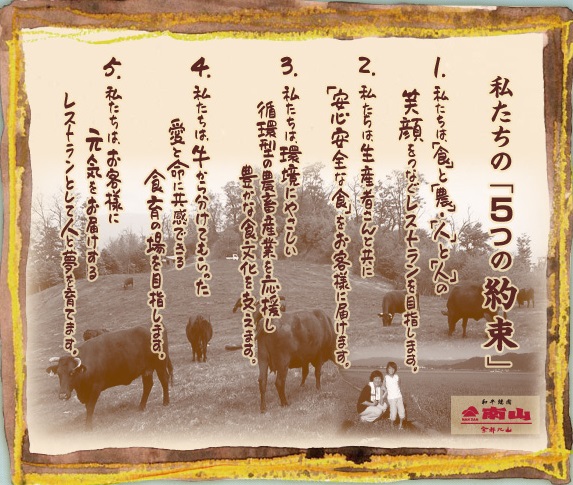 私たちの「5つの約束」
1. 私たちは、「食」と「農」、「人」と「人」の
笑顔をつなぐレストランを目指します。
2. 私たちは生産者さんと共に
「安心安全な食」をお客様に届けます。
3. 私たちは、環境にやさしい
循環型の農畜産業を応援し
豊かな食文化を支えます。
4. 私たちは、牛から分けてもらった
愛と命に共感できる
食育の場を目指します。
5. 私たちは、お客様に
元気をお届けする
レストランとして、人と夢を育てます。
和牛焼肉
南山